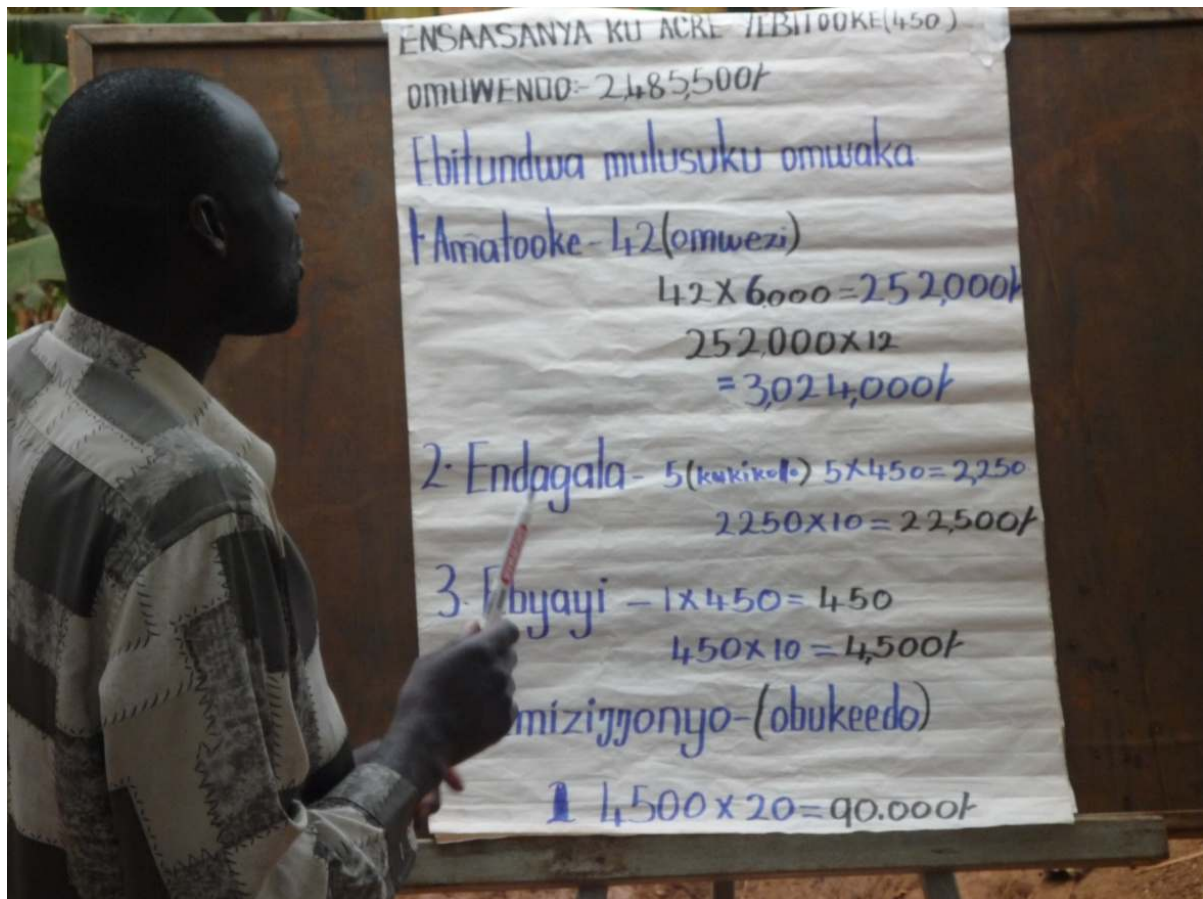 ENSAASANYA KU ACRE YEBITOOKE(450)
OMUWENDO:- 2,485,500/-
Ebitundwa mulusuku omwaka
1 Amatooke - 42(omwezi)
42 X 6,000 = 252,000/-
252,000 X 12
= 3,024,000/-
2. Endagala - 5(kukikolo) 5 X 450 = 2,250
2250 X 10 = 22,500/-
3. Ebyayi - 1 X 450 = 450
450 X 10 = 4,500/-
mizijjonyo - (obukeedo)
1 4,500 X 20 = 90.000/-